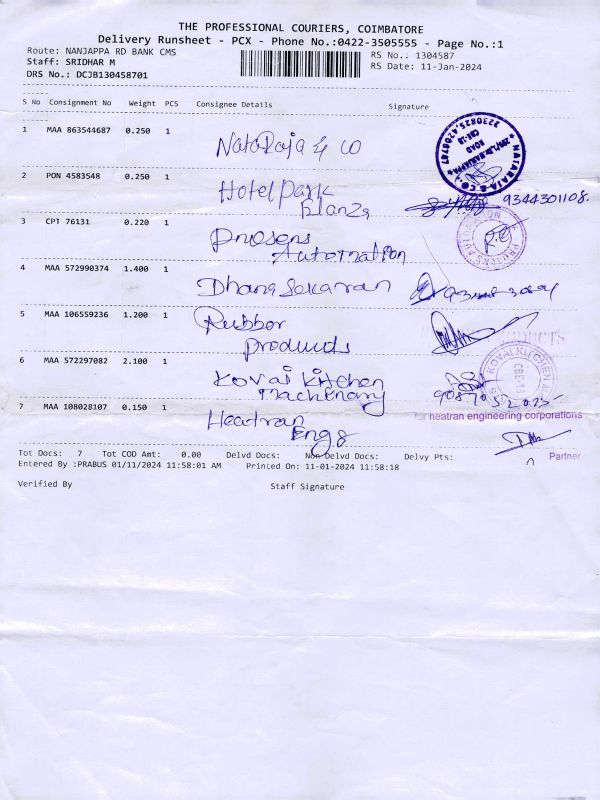 THE PROFESSIONAL COURIERS, COIMBATORE
Delivery Runsheet - PCX - Phone No.:0422-3505555 - Page No.:1
Route: NANJAPPA RD BANK CMS
RS No.: 1304587
Staff: SRIDHAR M
RS Date: 11-Jan-2024
DRS No.: DCJB130458701
S No Consignment No Weight PCS Consignee Details Signature
1 MAA 863544687 0.250 1 Nataraja & co
2 PON 4583548 0.250 1 Hotel park
planza 9344301108.
3 CPT 76131 0.220 1 Prosens
Automation
4 MAA 572990374 1.400 1 Dhana sekaran
5 MAA 106559236 1.200 1 Rubber
products
6 MAA 572297082 2.100 1 Kovai kitchen
Machenary
7 MAA 108028107 0.150 1 Heatran
Engg
for heatran engineering corporations
Partner
Tot Docs: 7 Tot COD Amt: 0.00 Delvd Docs: Non Delvd Docs: Delvy Pts:
Entered By :PRABUS 01/11/2024 11:58:01 AM Printed On: 11-01-2024 11:58:18
Verified By Staff Signature